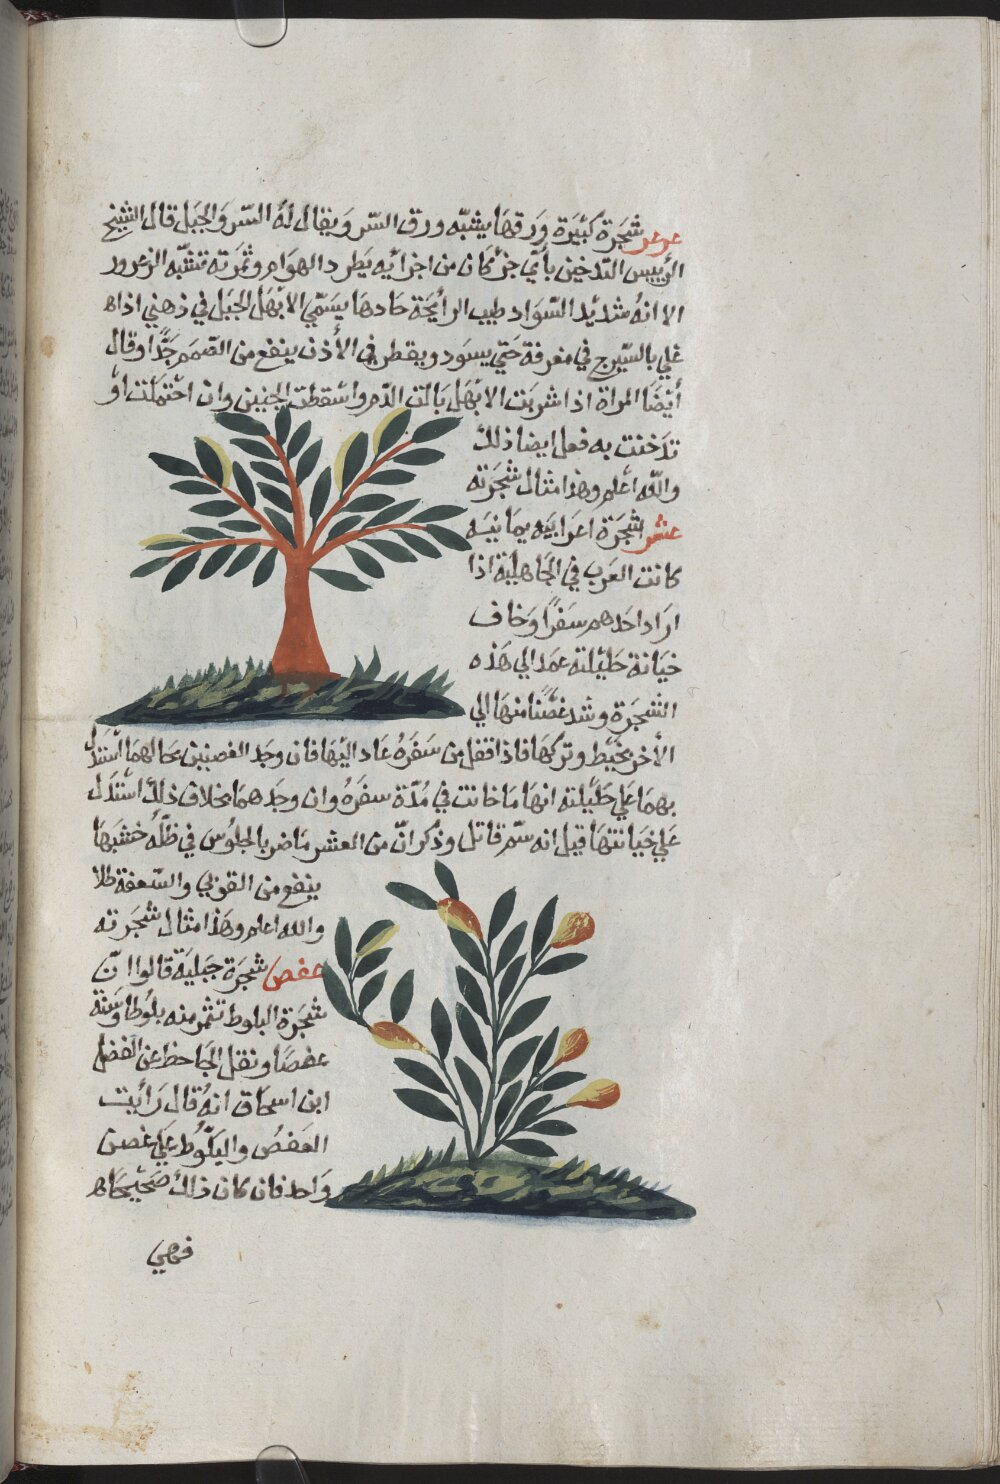 عرعر شجرة كبيرة ورقها يشبه ورق السرو ويقال له السرو الجبل قال الشيخ
الرييس التدخين بأي جزء كان من اجزايه يطرد الهوام وثمرته تشبه الزعرور
الا انه شديد السواد طيب الرايحة حادها يسمي الابهل الجبل في ذهني اذا ه
غلي بالسيرج في مغرفة حتي يسود ويقطر في الأذن ينفع من الصمم جدا وقال
أيضا المراة اذا شربت الابهل بالت الدم واسقطت الجنين وان احتملت او
تدخنت به فعل ايضا ذلك
والله أعلم وهذا مثال شجرته
عشر شجرة اعرابيه يمانيه
كانت العرب في الجاهلية اذا
اراد احدهم سفرا وخاف
خيانة حليلته عمد الي هذه
الشجرة وشد غصنا منها الي
الأخر بخيط وتركها فاذا قفل من سفره عاد اليها فان وجد الغصنين بحالهما استدل
بهما علي حليلته انها ما خانت في مدة سفره وان وجدهما بخلاف ذلك استدل
علي خيانتها قيل انه سم قاتل وذكر ان من العشر ما ضر بالجلوس في ظله خشبها
ينفع من القوبي والسعفة طلا
والله اعلم وهذا مثال شجرته
عفص شجرة جبلية قالوا ان
شجرة البلوط تثمر منه بلوطا وسنة
عفصا ونقل الجاحظ عن الفضل
ابن اسحاق انه قال رأيت
العفص والبلوط علي غصن
واحد فان كان ذلك صحيحا ه
فهي